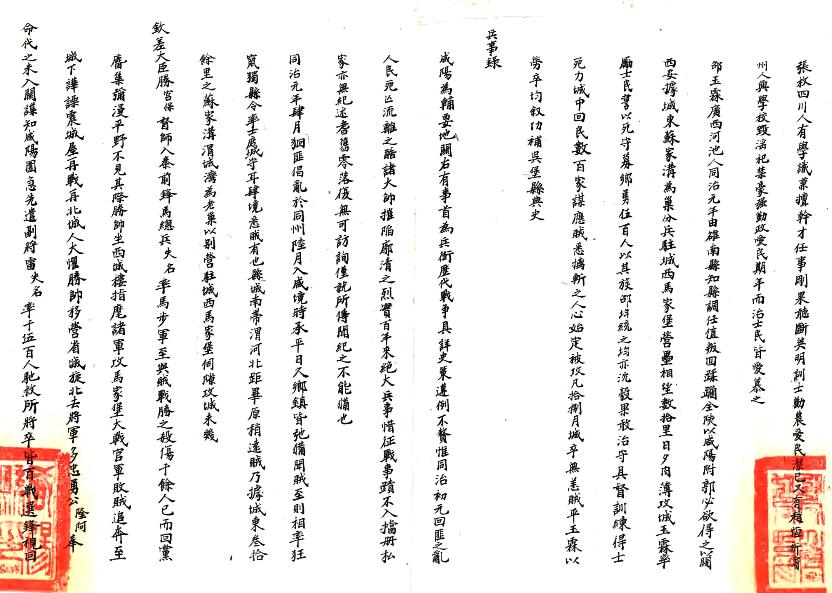 張枚四川人有學識素擅幹才任事剛果聽斷英明訓士勤農愛民潔己又有賴恆祈眉
州人興學校毀淫祀禁豪強勤政愛民期年而治士民皆愛慕之
邵玉霖廣西河池人同治元年由雒南縣知縣調任值叛回蹂躪全陝以咸陽附郭必欲得之闢
西安據城東蘇家溝為巢分兵駐城西馬家堡營壘相望數拾里日夕肉薄攻城玉霖率
勵士民誓以死守募鄉勇伍百人以其族邵均統之均亦沉毅果敢治守具督訓練得士
死力城中回民數百家謀應賊悉擒斬之人心始定被攻凡拾捌月城卒無恙賊平玉霖以
勞卒均敘功補吳堡縣典史
兵事錄
咸陽為輔要地關右有事首為兵衝歷代戰爭具詳史策遵例不贅惟同治初元回匪之亂
人民死亡流離之酷諸大帥摧陷廓清之烈實百年來絕大兵事惜征戰事蹟不入檔冊私
家亦無紀述耆舊零落復無可訪詢僅就所傳聞紀之不能備也
同治元年肆月回匪倡亂於同州陸月入咸境時承平日久鄉鎮皆弛備聞賊至則相率狂
竄獨縣令率士庶城守耳肆境悉賊有也縣城南帶渭河北距畢原稍遠賊乃據城東叁拾
餘里之蘇家溝渭城灣為老巢以別營駐城西馬家堡伺隙攻城未幾
欽差大臣勝宮保督師入秦前鋒馬總兵失名率馬步軍至與賊戰勝之殺傷千餘人已而回黨
麕集彌漫平野不見其際勝帥坐西城樓指麾諸軍攻馬家堡大戰官軍敗賊追奔至
城下譁譟震城屋再戰再北城人大懼勝帥移營省城旋北去將軍多忠勇公隆阿奉
命代之未入關諜知咸陽圍急先遣副將雷失名率千伍百人馳救所將卒皆百戰選鋒視回